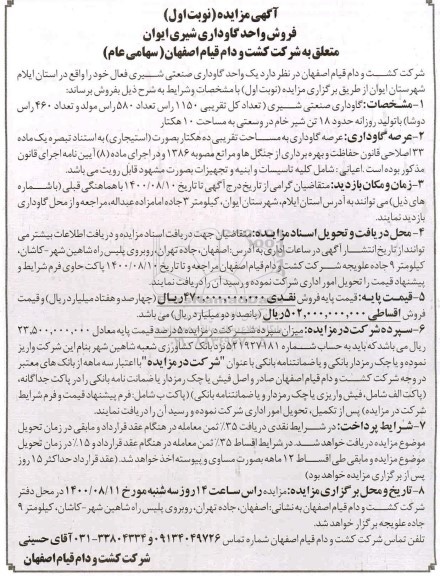 آگهی مزایده (نوبت اول)
فروش واحد گاوداری شیری ایوان
متعلق به شرکت کشت و دام قیام اصفهان (سهامی عام)
شرکت کشت و دام قیام اصفهان در نظر دارد یک واحد گاوداری صنعتی شیری فعال خود را واقع در استان ایلام
شهرستان ایوان از طریق برگزاری مزایده (نوبت اول) با مشخصات و شرایط به شرح ذیل بفروش برساند:
۱-مشخصات: گاوداری صنعتی شیری (تعداد کل تقریبی ۱۱۵۰ راس تعداد ۵۸۰ راس مولد و تعداد ۴۶۰ راس
دوشا) با تولید روزانه حدود ۱۸ تن شیر خام در وسعتی به مساحت ۱۰ هکتار
۲-عرصه گاوداری: عرصه گاوداری به مساحت تقریبی ده هکتار بصورت (استیجاری) به استناد تبصره یک ماده
۳۳ اصلاحی قانون حفاظت و بهره برداری از جنگل ها و مراتع مصوبه ۱۳۸۶ و در اجرای ماده (۸) آیین نامه اجرای قانون
مذکور بوده است. اعیانی: شامل کلیه تاسیسات و ابنیه و تجهیزات بصورت مشهود قابل رویت می باشد.
۳-زمان و مکان بازدید: متقاضیان گرامی از تاریخ درج آگهی تا تاریخ ۱۴۰۰/۰۸/۱۰ با هماهنگی قبلی (با شماره
های ذیل) می توانند به آدرس استان ایلام، شهرستان ایوان، کیلومتر ۳ جاده امامزاده عبداله، مراجعه و از محل گاوداری
بازدید نمایند.
۴-محل دریافت و تحویل اسناد مزایده: متقاضیان جهت دریافت اسناد مزایده و دریافت اطلاعات بیشتر می
توانند از تاریخ انتشار آگهی در ساعات اداری به آدرس: اصفهان، جاده تهران، روبروی پلیس راه شاهین شهر-کاشان،
کیلومتر ۹ جاده علویجه شرکت کشت و دام قیام اصفهان مراجعه و تا تاریخ ۱۴۰۰/۰۸/۱۰ پاکت حاوی فرم شرایط و
پیشنهاد قیمت را تحویل امور اداری شرکت نموده و رسید آن را دریافت نمایند.
۵-قیمت پایه: قیمت پایه فروش نقدی ۴۷۰،۰۰۰،۰۰۰،۰۰۰ ریال (چهارصد و هفتاد میلیارد ریال) و قیمت
فروش اقساطی ۵۰۲،۰۰۰،۰۰۰،۰۰۰ ریال (پانصد و دو میلیارد ریال) می باشد.
۶-سپرده شرکت در مزایده: میزان سپرده شرکت در مزایده ۵ درصد قیمت پایه معادل ۲۳،۵۰۰،۰۰۰،۰۰۰
ریال می باشد که باید به حساب شماره ۵۲۱۹۲۷۱۸۱ نزد بانک کشاورزی شعبه شاهین شهر بنام این شرکت واریز
نموده و یا چک رمزدار بانکی و یا ضمانتنامه بانکی با عنوان "شرکت در مزایده" با اعتبار سه ماهه از بانک های معتبر
در وجه شرکت کشت و دام قیام اصفهان صادر و اصل فیش یا چک رمزدار یا ضمانت نامه بانکی را در پاکت جداگانه،
(پاکت الف شامل، فیش واریزی یا چک رمزدار و یا ضمانتنامه بانکی) (پاکت ب شامل: فرم پیشنهاد قیمت و فرم شرایط
شرکت در مزایده) پس از تکمیل، تحویل امور اداری شرکت نموده و رسید آن را دریافت نمایند.
۷-شرایط پرداخت: در شرایط نقدی دریافت ۳۵٪ ثمن معامله در هنگام عقد قرارداد و مابقی در زمان تحویل
موضوع مزایده دریافت خواهد شد. در شرایط اقساط ۳۵٪ ثمن معامله در هنگام عقد قرارداد و ۱۵٪ در زمان تحویل
موضوع مزایده و مابقی طی اقساط ۱۲ ماهه بصورت مساوی و پیوسته اخذ خواهد شد. (عقد قرارداد حداکثر ۱۵ روز
پس از برگزاری مزایده خواهد بود)
۸-تاریخ و محل برگزاری مزایده: مزایده راس ساعت ۱۴ روز سه شنبه مورخ ۱۴۰۰/۰۸/۱۱ در محل دفتر
شرکت کشت و دام قیام اصفهان به نشانی: اصفهان، جاده تهران، روبروی پلیس راه شاهین شهر-کاشان، کیلومتر ۹
جاده علویجه برگزار خواهد شد.
تلفن تماس شرکت کشت و دام قیام اصفهان شماره تماس ۰۹۱۳۴۰۴۹۷۲۶ و ۳۳۸۰۴۳۳۴-۰۳۱ آقای حسینی
شرکت کشت و دام قیام اصفهان